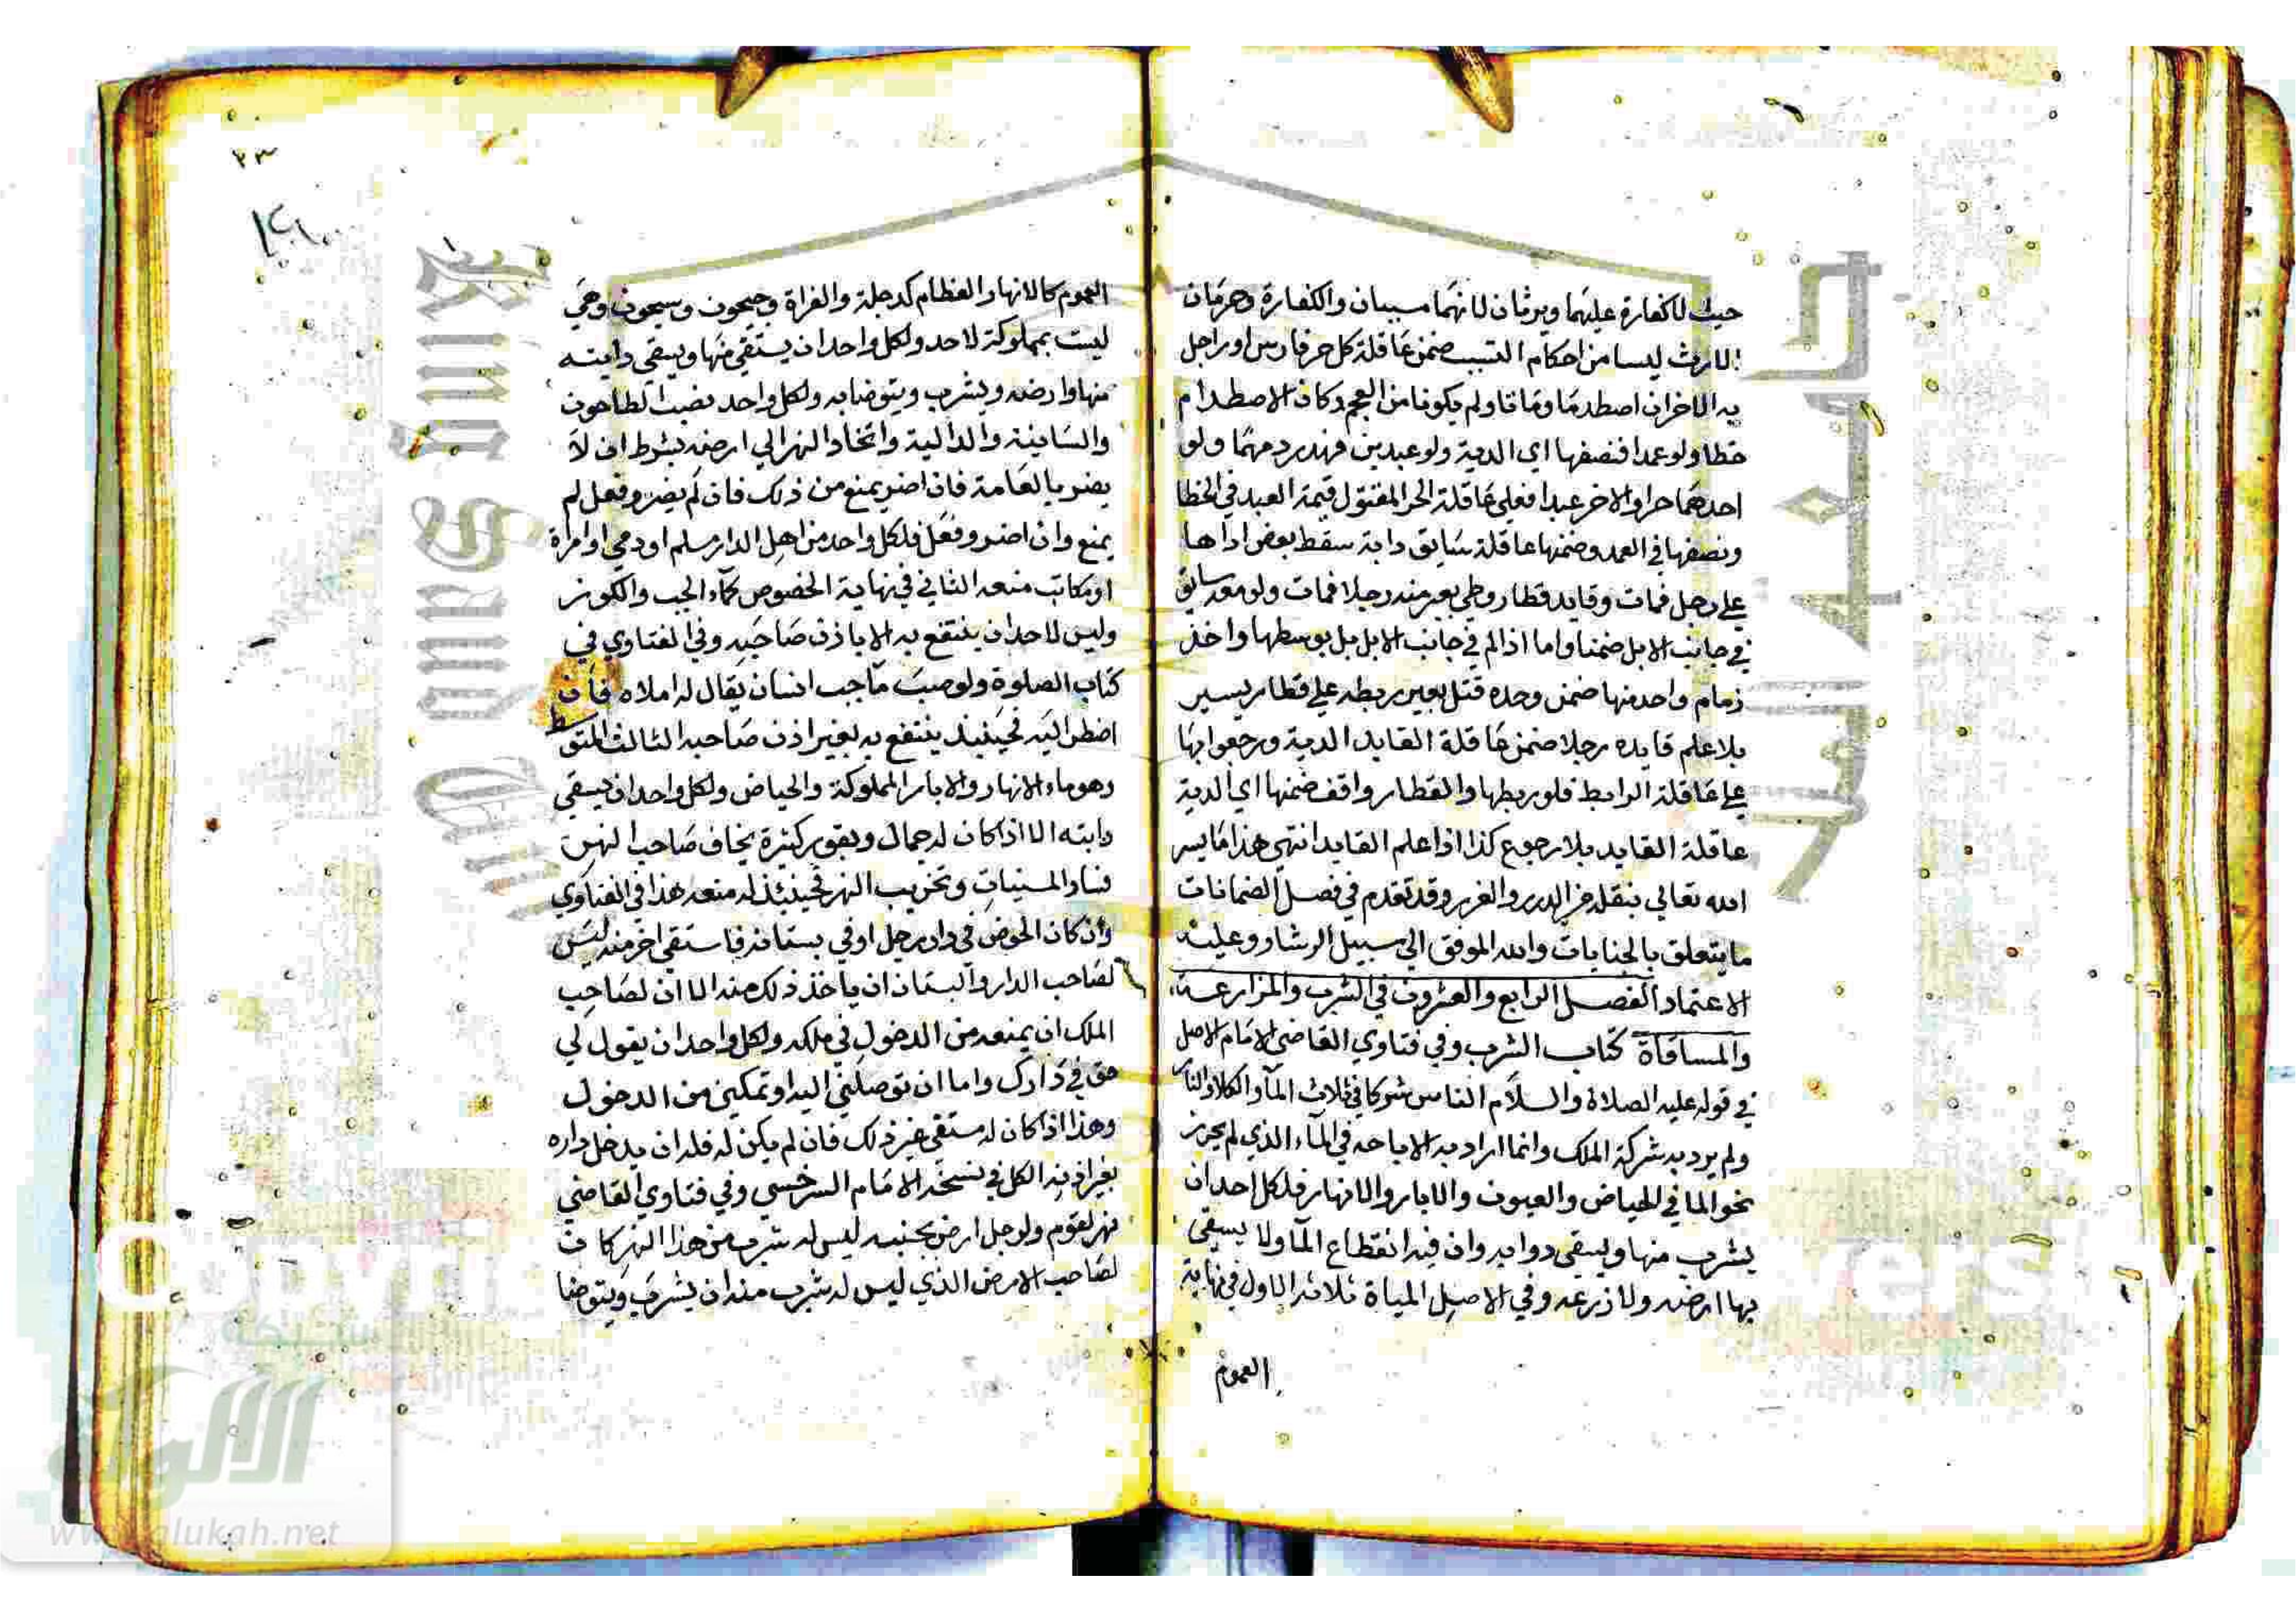 حيث لا كفارة عليهما ويرثان لانهما مسببان والكفارة وحرمان
الارث ليسا من احكام التسبب ضمن عاقلة كل حر فارس او راجل
دية الاخر ان اصطدما وماتا ولم يكونا من العجم وكان الاصطدام
خطا ولو عمدا فنصفها اي الدية ولو عبدين فهدر دمهما ولو
احدهما حرا والاخر عبدا فعلي عاقلة الحر المقتول قيمة العبد في الخطا
ونصفها في العمد وضمنها عاقلة سايق دابة سقط بعض اداتها
علي رجل فمات وقايد قطار وطي بعير منه رجلا فمات ولو معه سايق
في جانب الابل ضمنا واما اذا لم في جانب الابل بل بوسطها واخذ
زمام واحد منها ضمن وحده قتل بعير ربطه علي قطار يسير
بلا علم قايده رجلا ضمن عاقلة القايد الدية ورجعوا بها
علي عاقلة الرابط فلو ربطها والقطار واقف ضمنها اي الدية
عاقلة القايد بلا رجوع كذا اذا علم القايد انتهي هذا ما يسر
الله تعالي بنقله من الدرر والغرر وقد تقدم في فصل الضمانات
ما يتعلق بالجنايات والله الموفق الي سبيل الرشاد وعليه
الاعتماد الفصل الرابع والعشرون في الشرب والمزارعة
والمساقاة كتاب الشرب وفي فتاوي القاضي الامام الاصل
في قوله عليه الصلاة والسلام الناس شركا في ثلاث المآ والكلا والنار
ولم يرد به شركة الملك وانما اراد به الاباحه في المآء الذي لم يحرز
نحو الما في الحياض والعيون والابار والانهار فلكل احد ان
يشرب منها ويسقي دوابه وان فيه انقطاع المآ ولا يسقي
بها ارضه ولا زرعه وفي الاصل المياة ثلاثة الاول في نهاية
العموم
٢٣
العموم كالانهار العظام كدجلة والفراة وجيحون وسيحون وهي
ليست بمملوكة لاحد ولكل واحد ان يستقي منها ويسقي دابته
منها وارضه ويشرب ويتوضا به ولكل واحد نصب الطاحون
والسانية والدالية واتخاد النهر الي ارضه بشرط ان لا
يضر بالعامة فان اضر يمنع من ذلك فان لم يضر وفعل لم
يمنع وان اضر وفعل فلكل واحد من اهل الدار مسلم او ذمي او امراة
او مكاتب منعه الثاني في نهاية الخصوص كمآء الجب والكوز
وليس لاحد ان ينتفع به الا باذن صاحبه وفي الفتاوي في
كتاب الصلوة ولو صب مآ جب انسان يقال له املاه فان
اضطر اليه فحينيذ ينتفع به بغير اذن صاحبه الثالث المتوسط
وهو ماء الانهار والابار المملوكة والحياض ولكل واحد ان يسقي
دابته الا اذا كان له جمال وبقور كثيرة يخاف صاحب النهر
فساد المسنيات وتخريب النهر فحينيذ له منعه هذا في الفتاوي
وان كان الحوض في دار رجل او في بستانه فاستقي اخر منه ليس
لصاحب الدار والبستان ان ياخذ ذلك منه الا ان لصاحب
الملك ان يمنعه من الدخول في ملكه ولكل واحد ان يقول لي
حق في دارك واما ان توصلني اليه او تمكين من الدخول
وهذا اذا كان له مستقي غير ذلك فان لم يكن له فله ان يدخل داره
بغير اذنه الكل في نسخة الامام السرخسي وفي فتاوي القاضي
نهر لقوم ولرجل ارض بجنبه ليس له شرب من هذا النهر كان
لصاحب الارض الذي ليس له شرب منه ان يشرب ويتوضا
شبكة
الالوكة
www.alukah.net